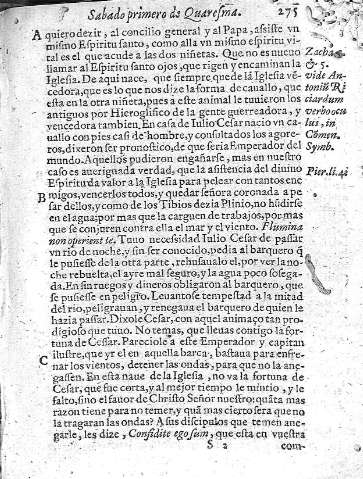 Sabado primero de Quaresma. 275
A quiero dezir, al concilio general y al Papa, assiste vn
mismo Espiritu santo, como alla vn mismo espiritu vi-
tal es el que acude a las dos niñetas. Que no es nueuo
llamar al Espiritu santo ojos, que rigen y encaminan la
Iglesia. De aqui nace, que siempre que de la Iglesia vē-
cedora, que es lo que nos dize la forma de cauallo, que
esta en la otra niñeta, pues a este animal le tuuieron los
antiguos por Hieroglifico de la gente guerreadora, y
vencedora tambien. En casa de Iulio Cesar nacio vn ca-
uallo con pies casi de hombre, y consultados los agore-
ros, dixeron ser pronostico, de que seria Emperador del
mundo. Aquellos pudieron engañarse, mas en nuestro
caso es aueriguada verdad, que la asistencia del diuino
Espiritu da valor a la Iglesia para pelear con tantos ene
B migos, vencerlos todos, y quedar señora coronada a pe
sar dellos, y como de los Tibios dezia Plinio, no hūdirse
en el agua: por mas que la carguen de trabajos, por mas
que se conjuren contra ella el mar y el viento. Flumina
non operient te. Tuuo necessidad Iulio Cesar de passar
vn rio de noche, y sin ser conocido, pedia al barquero q̄
le pusiesse de la otra parte, rehusaualo el, por ver la no-
che rebuelta, el ayre mal seguro, y la agua poco sosega-
da. En fin ruegos y dineros obligaron al barquero, que
se pusiesse en peligro. Leuantose tempestad a la mitad
del rio, peligrauan, y renegaua el barquero de quien le
hazia passar. Dixole Cesar, con aquel animaço tan pro-
digioso que tuuo. No temas, que lleuas contigo la for-
tuna de Cessar. Pareciole a este Emperador y capitan
C ilustre, que yr el en aquella barca, bastaua para enfre-
nar los vientos, detener las ondas, para que no la ane-
gassen. En esta naue de la Iglesia, no va la fortuna de
Cesar, que fue corta, y al mejor tiempo le mintio, y le
falto, sino el fauor de Christo Señor nuestro: quāta mas
razon tiene para no temer, y quā mas cierto sera que no
la tragaran las ondas? A sus dicipulos que temen ane-
garle, les dize, Confidite ego sum, que esta en vuestra
S 2 com-
Zacha.
& 5.
vide An-
toniū Ri
ciardum
verbo ocu
lus, in
Cōmen.
Symb.
Pier. li. 41